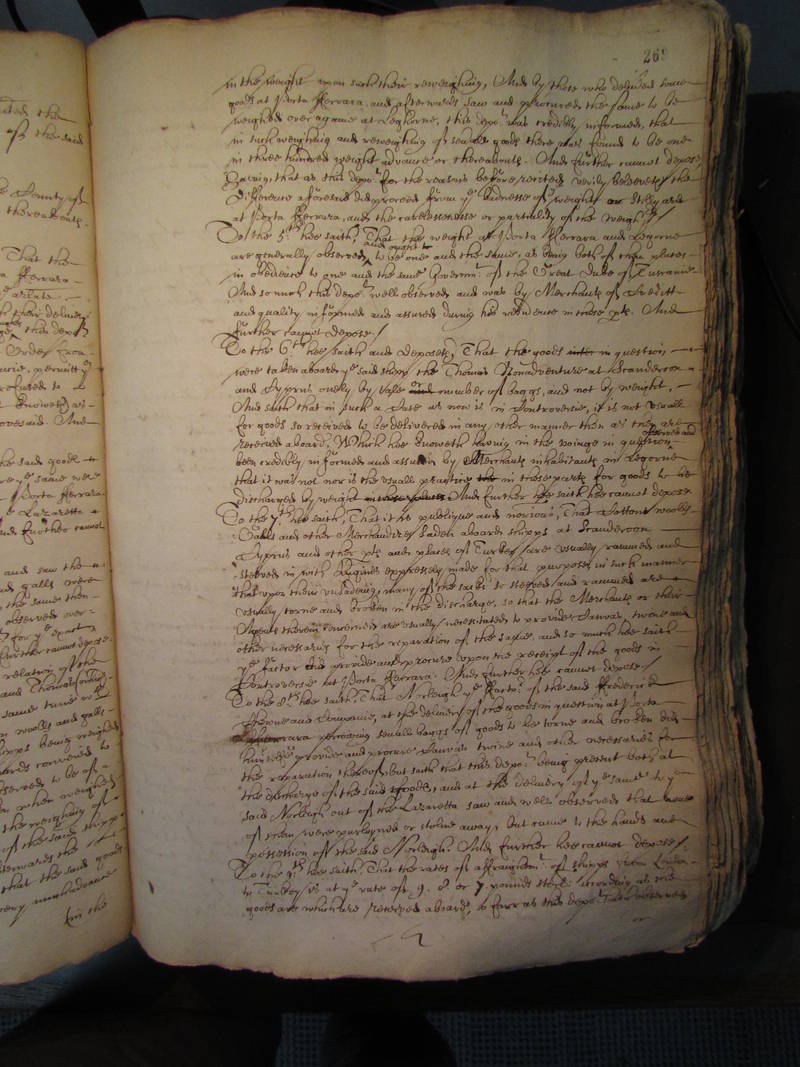 269
in the weight upon such their reweighing, And by those who delivered some
goods at Porta fferrara, and afterwards saw and procured the same to be
weighed over againe at Leghorne, this depot was credibly informed, that
in such weighing and reweighing of severall goods there was found to be one
in three hundred weight advance or thereabouts. And further cannot depose
Saving that as this depot for the reasons before recited verily beleeveth the
difference aforesaid did proceed from ye badnesse of weights or Stilyard
at Porta fferrara, and the carelessnesse or partiality of the weighers
To the 5th hee saith, That the weight at Porta fferrara and Legorne
are generally observed and ought to be one and the same, as being both of them places
in obedience to one and the same Governmt of the Great Duke of Tuscanie
And so much this depot well observed and was by Merchants of Creditt
and quality informed and assured during his residence in those pts. And
further cannot depose /
To the 6th hee saith and deposeth, That the goods in question
were taken aboard ye said shipp the Thomas Bonadventure at Scanderoon
and Cyprus onely by tale and number of baggs, and not by weight,
And saith that in such a Case as now is in Controversie, it is not usuall
for goods so received to be delivered in any other manner than as they are
received aboard, Which hee knoweth having in the voiage in question observed and
been credibly informed and assured by Merchants inhabitants in Legorne
that it was not nor is the usuall practice in those parts for goods to be
discharged by weight And further hee saith hee cannot depose
To the 7th hee saith, That it is publique and notorious, That Cottons woolls
Galls and other Merchandizes laden aboard shipps at Scanderoon
Cyprus and other pts and places of Turkey are usually rammed and
steeved in with Engines expressely made for that purpose, in such manner
that upon their unladeing, many of the sacks so steeved and rammed are
usually torne and broken in the discharge, so that the Merchants or their
Agents therein concerned are usually necessitated to provide Canvas, twine and
other necessaries for the reparation of the same, and so much hee saith
ye factor did provide and procure upon the receipt of the goods in
Controversie at Porta fferrara. And further hee cannot depose /
To the 8th hee saith, That Norleigh ye ffactor of the said ffrederick
Browne and Companie, at the delivery of the goods in question at Porta
fferrara perceiving severall baggs of goods to be torne and broken did
himselfe provide and procure Canvas twine and other necessaries for
the reparation thereof but saith that this depot being present both at
the discharge of the said goods, and at the delivery of ye same to ye
said Norleigh out of the Lazaretta saw and well observed that none
of them were purloyned or stolne away, but came to the hands and
possession of the said Norleigh. And further hee cannot depose /
To the 9th hee saith, That the rates of affraightmt of shipps from London
to Turkey is at ye rate of 9. 8. or 7 pounds sterl: according as the
goods are which are received aboard, so farr as this depot hath observed
or